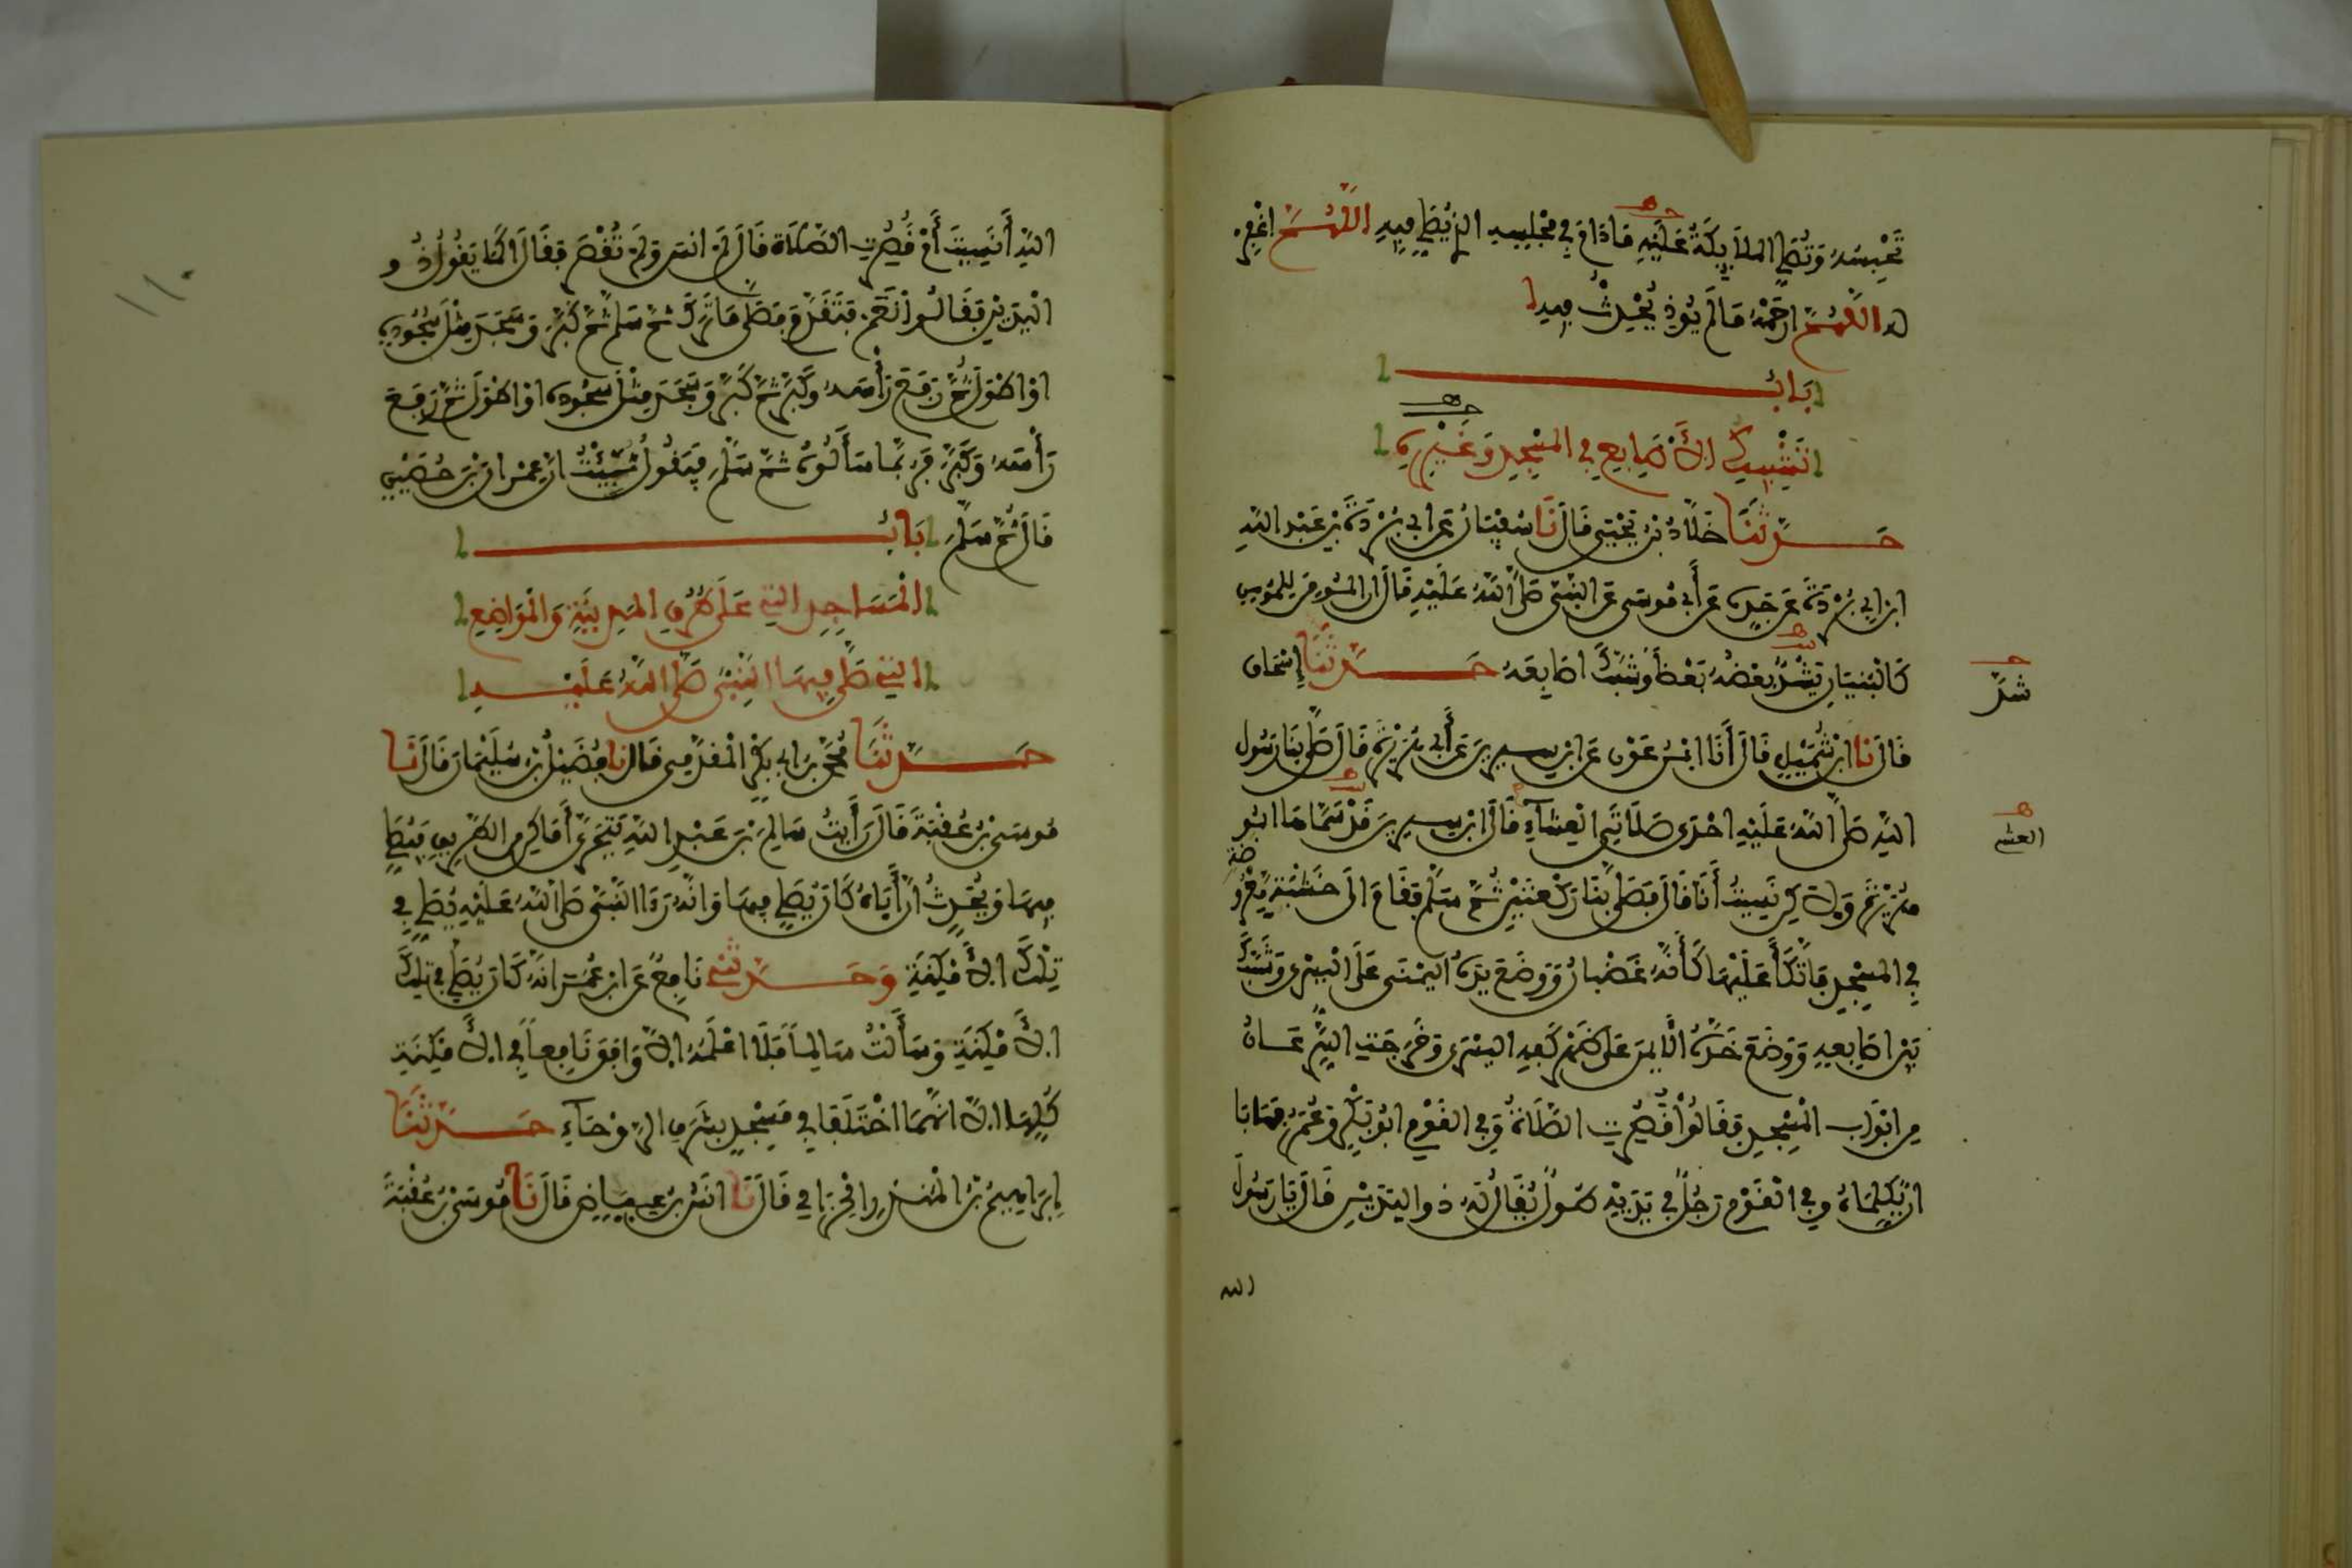 تَحْبِسُهُ وَتُصَلِّي الملَائِكَةُ عَلَيْهِ مَادَامَ فِي مَجْلِسِهِ الذِي يُصَلِّي فِيهِ اللَّهُمَّ اغْفِرْ
لَهُ اللَّهُمَّ ارْحَمْهُ مَا لَمْ يُوذِ يُحْدِثْ فِيهِ
بَابُ
تَشْبِيكِ الأَصَابِعِ فِي المَسْجِدِ وَغَيْرِهِ
حَدَّثَنَا خَلَّادُ بْنُ يَحْيَى قَالَ نَا سُفْيَانُ عَنْ أَبِي بُرْدَةَ بْنِ عَبْدِ اللَّهِ
ابْنِ أَبِي بُرْدَةَ عَنْ جَدِّهِ عَنْ أَبِي مُوسَى عَنِ النَّبِيِّ صَلَّى اللَّهُ عَلَيْهِ قَالَ إِنَّ المُومِنَ لِلْمُومِنِ
كَالْبُنْيَانِ يَشُدُّ بَعْضُهُ بَعْضًا وَشَبَّكَ أَصَابِعَهُ حَدَّثَنَا إِسْحَاق
شدّ
قَالَ نَا ابْنُ شُمَيْلٍ قَالَ أَنَا ابْنُ عَوْنٍ عَنِ ابْنِ سِيرِينَ عَنْ أَبِي هُرَيْرَةَ قَالَ صَلَّى بِنَا رَسُولُ
اللَّهِ صَلَّى اللَّهُ عَلَيْهِ إِحْدَى صَلَاتَيِ العِشَاءِ قَالَ ابْنُ سِيرِينَ قَدْ سَمَّاهَا أَبُو
العشي
هُرَيْرَةَ وَلَكِنْ نَسِيتُ أَنَا قَالَ فَصَلَّى بِنَا رَكْعَتَيْنِ ثُمَّ سَلَّمَ فَقَامَ إِلَى خَشَبَةٍ مَعْرُوضَةٍ
فِي المَسْجِدِ فَاتَّكَأَ عَلَيْهَا كَأَنَّهُ غَضْبَانُ وَوَضَعَ يَدَهُ اليُمْنَى عَلَى اليُسْرَى وَشَبَّكَ
بَيْنَ أَصَابِعِهِ وَوَضَعَ خَدَّهُ الأَيْمَنَ عَلَى ظَهْرِ كَفِّهِ اليُسْرَى وَخَرَجَتِ السَّرَعَانُ
مِنْ أَبْوَابِ المَسْجِدِ فَقَالُوا قُصِرَتِ الصَّلَاةُ وَفِي القَوْمِ أَبُو بَكْرٍ وَعُمَرُ فَهَابَا
أَنْ يُكَلِّمَاهُ وَفِي القَوْمِ رَجُلٌ فِي يَدَيْهِ طُولٌ يُقَالُ لَهُ ذُو اليَدَيْنِ قَالَ يَا رَسُولَ
الله
اللَّهِ أَنَسِيتَ أَمْ قُصِرَتِ الصَّلَاةُ قَالَ لَمْ أَنْسَ وَلَمْ تُقْصَرْ فَقَالَ أَكَمَا يَقُولُ ذُو
الْيَدَيْنِ فَقَالُوا نَعَمْ فَتَقَدَّمَ فَصَلَّى مَا تَرَكَ ثُمَّ سَلَّمَ ثُمَّ كَبَّرَ وَسَجَدَ مِثْلَ سُجُودِهِ
أَوْ أَطْوَلَ ثُمَّ رَفَعَ رَأْسَهُ وَكَبَّرَ ثُمَّ كَبَّرَ وَسَجَدَ مِثْلَ سُجُودِهِ أَوْ أَطْوَلَ ثُمَّ رَفَعَ
رَأْسَهُ وَكَبَّرَ فَرُبَّمَا سَأَلُوهُ ثُمَّ سَلَّمَ فَيَقُولُ نُبِّئْتُ أَنَّ عِمْرَانَ بْنَ حُصَيْنٍ
قَالَ ثُمَّ سَلَّمَ بَابُ
الْمَسَاجِدِ التِي عَلَى طُرُقِ المَدِينَةِ وَالمَوَاضِعِ
التِي صَلَّى فِيهَا النَّبِيُّ صَلَّى اللَّهُ عَلَيْهِ
حَدَّثَنَا مُحَمَّدُ بْنُ أَبِي بَكْرٍ الْمُقَدَّمِي قَالَ نَا فُضَيْلُ بْنُ سُلَيْمَانَ قَالَ نَا
مُوسَى بْنُ عُقْبَةَ قَالَ رَأَيْتُ سَالِمَ بْنَ عَبْدِ اللَّهِ يَتَحَرَّى أَمَاكِنَ مِنَ الطَّرِيقِ فَيُصَلِّي
فِيهَا وَيُحَدِّثُ أَنَّ أَبَاهُ كَانَ يُصَلِّي فِيهَا وَأَنَّهُ رَأَى النَّبِيَّ صَلَّى اللَّهُ عَلَيْهِ يُصَلِّي فِي
تِلْكَ الأَمْكِنَةِ وَحَدَّثَنِي نَافِعٌ عَنِ ابْنِ عُمَرَ أَنَّهُ كَانَ يُصَلِّي فِي تِلْكَ
الأَمْكِنَةِ وَسَأَلْتُ سَالِمًا فَلَا أَعْلَمُهُ إِلَّا وَافَقَ نَافِعًا فِي الأَمْكِنَةِ
كُلِّهَا إِلَّا أَنَّهُمَا اخْتَلَفَا فِي مَسْجِدٍ بِشَرَفِ الرَّوْحَاءِ حَدَّثَنَا
إِبْرَاهِيمُ بْنُ المُنْذِرِ الحِزَامِي قَالَ نَا أَنَسُ بْنُ عِيَاضٍ قَالَ نَا مُوسَى بْنُ عُقْبَةَ